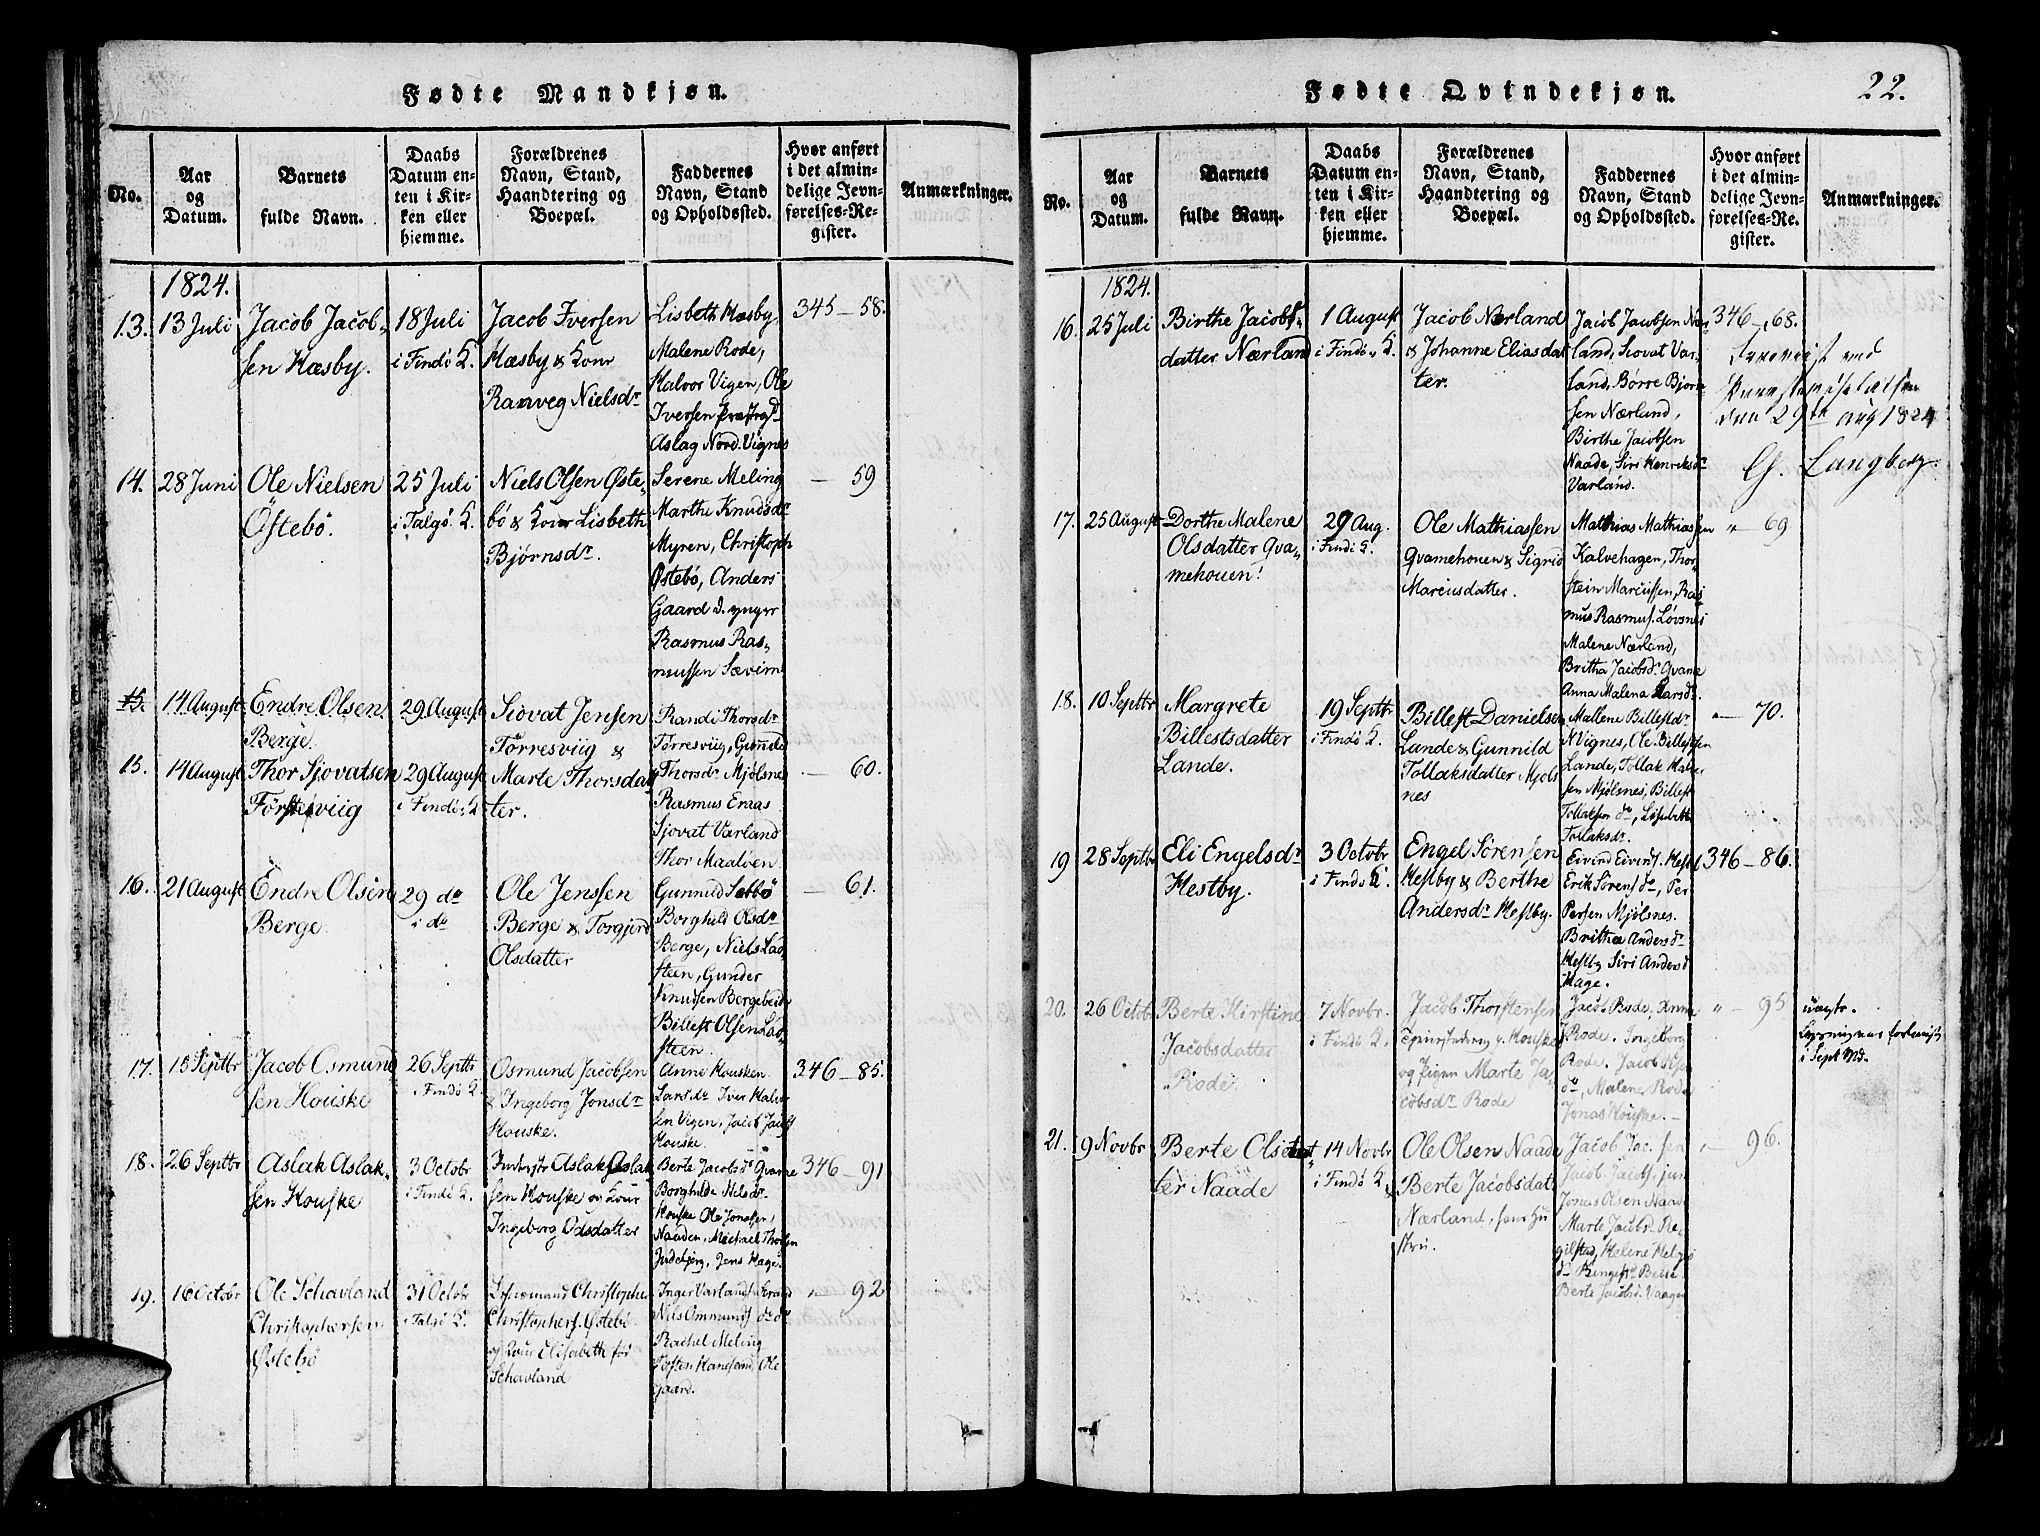 Fødte Mandkjøn.
No.
Aar
og
Datum.
Barnets
fulde Navn.
Daabs
Datum en-
ten i Kir-
ken eller
hjemme.
Forældrenes
Navn, Stand,
Haandtering og
Boepæl.
Faddernes
Navn, Stand
og Opholdssted.
Hvor anført
i det almin-
delige Jevn-
førelses-Re-
gister.
Anmærkninger.
1824.
13.
13 Juli
Jacob Jacob-
sen Hæsby.
18 Juli
i Findö K.
Jacob Iversen
Hæsby & Kone
Ranveg Nielsdr
Lisbeth Hæsby,
Malene Rode,
Halvor Vigen, Ole
Iversen
Aslag Nord. Vignes
345 – 58.
14.
28 Juni
Ole Nielsen
Östebö.
25 Juli
i Talgö K.
Niels Olsen Øste-
bö & Kone Lisbeth
Bjørnsdr.
Serene Meling
Marthe Knudsdr
Myren, Christoph
Østebö, Anders
Gaard d. ynger
Rasmus Ras-
mussen Sævim
– 59
15.
14 August
Endre Olsen
Berge.
29 August
15.
14 August
Thor Sjovatsen
Torresviig
29 August
i Findö K
Siovat Jensen
Torresviig &
Marte Thorsdat
ter.
Randi Thorsdr
Torresviig, Gunnild
Thorsdr Mjölsnes
Rasmus Eraas
Sjovat Varland
Thor Maaløen
– 60.
16.
21 August
Endre Olsen
Berge.
29 do
i do
Ole Jenssen
Berge & Torgjerd
Olsdatter
Gunnild Sebbö
Borghild Olsdr
Berge, Niels Lad-
steen, Gunder
Knutsen Bergebeide
Billest Olsen Lad-
steen.
– 61.
17.
15 Septbr
Jacob Osmund
sen Houske
26 Septbr
i Findö K.
Osmund Jacobsen
& Ingeborg Jonsdr
Houske.
Anne Housken
Larsdr Iver Halv-
sen Vigen, Jacob
Houske.
346 – 85.
18.
26 Septbr
Aslak Aslak-
sen Houske
3 Octobr
i Findö K.
Aslak Aslak
sen Houske og Kone
Ingeborg Odsdatter
Berte Jacobsdr Qvame
Borghilde Nilsdr
Houske Ole Jonassen,
Naaden, Michael Thorsen
Judebjerg, Jens Hage.
346 – 91
19.
16 Octobr
Ole Schavland
Christophersen
Østebö
31 Octobr
i Talgö K.
Christopher
Christophers. Østebö
og Kone Elisabeth
Schavland
Inger Varland
Nils Ommunds do do
Rachel Meling
Tosten Haneand, Ole
Gaard.
" 92
Fødte Qvindekjøn.
22.
No.
Aar
og
Datum.
Barnets
fulde Navn.
Daabs
Datum en-
ten i Kir-
ken eller
hjemme.
Forældrenes
Navn, Stand,
Haandtering og
Boepæl.
Faddernes
Navn, Stand
og Opholdssted.
Hvor anført
i det almin-
delige Jevn-
førelses-Re-
gister.
Anmærkninger.
1824.
16.
25 Juli
Birthe Jacobs-
datter Nærland
1 August
i Findö K.
Jacob Nærland
& Johanne Eliasdat
ter.
Jacob Jacobsen Nær-
land, Siovat Var-
land, Børre Bjorn-
sen Nærland,
Birthe Jacobsen
Naade, Siri Henriksdr
Varland.
346 – 68.
Foreviist ved
den 29th Aug 1824
G. Langberg.
17.
25 August
Dorthe Malene
Olsdatter Qva-
mehouen.
29 Aug.
i Findö K.
Ole Mathiassen
Qvamehouen & Sigrid
Marcusdatter.
Mathias Mathiassen
Kalvehagen, Thor-
stein Marcussen, Ras
mus Rasmus. Løvsnes
Malene Nærland,
Britha Jacobsdr Qvame
Anna Malena Larsdr.
" 69
18.
10 Septbr
Margrete
Billestsdatter
Lande.
19 Septbr
i Findö K.
Billest Danielsen
Lande & Gunnild
Tollaksdatter Mjols
nes
Mallene Billestdr
Vignes, Ole Billestsen
Lande, Tollak Halvor
sen Mjölsnes, Billest
Tollaksen do, Lisebeth
Tollaksdr.
– 70.
19
28 Septbr
Eli Engelsdr
Hestby.
3 Octobr
i Findö K.
Engel Sörensen
Hestby & Berthe
Andersdr Hestby.
Eivind Eivinds. Hestb
Erik Sörens do, Per
Persen Mjölsnes.
Brithæ Andersdr
Hestby Siri Andersd
Hage.
346 – 86.
20.
26 Octobr
Berte Kirstine
Jacobsdatter
Rode.
7 Novbr.
i Findö K.
Jacob Thorstensen
Houske
og Pigen Marte Ja-
cobsdr Rode
Jacob Rode, Anna
Rode. Ingeborg
Rode. Jacob
do, Malene Rode
Jonas Houske.
" – 95
uægte.
i Sept Md.
21.
9 Novbr
Berte Olsdat
ter Naade
14 Novbr
i Findö K
Ole Olsen Naade
& Berte Jacobsdat
Nærland, hans Hu
stru.
Jacob Jac. sen
Jacob Jacobs. jun
Jonas Olsen Naade
Marte Jacobsd. Re-
gilstad, Helene Helges
dr
Berte Jacobsdr Vaagen
– 96.